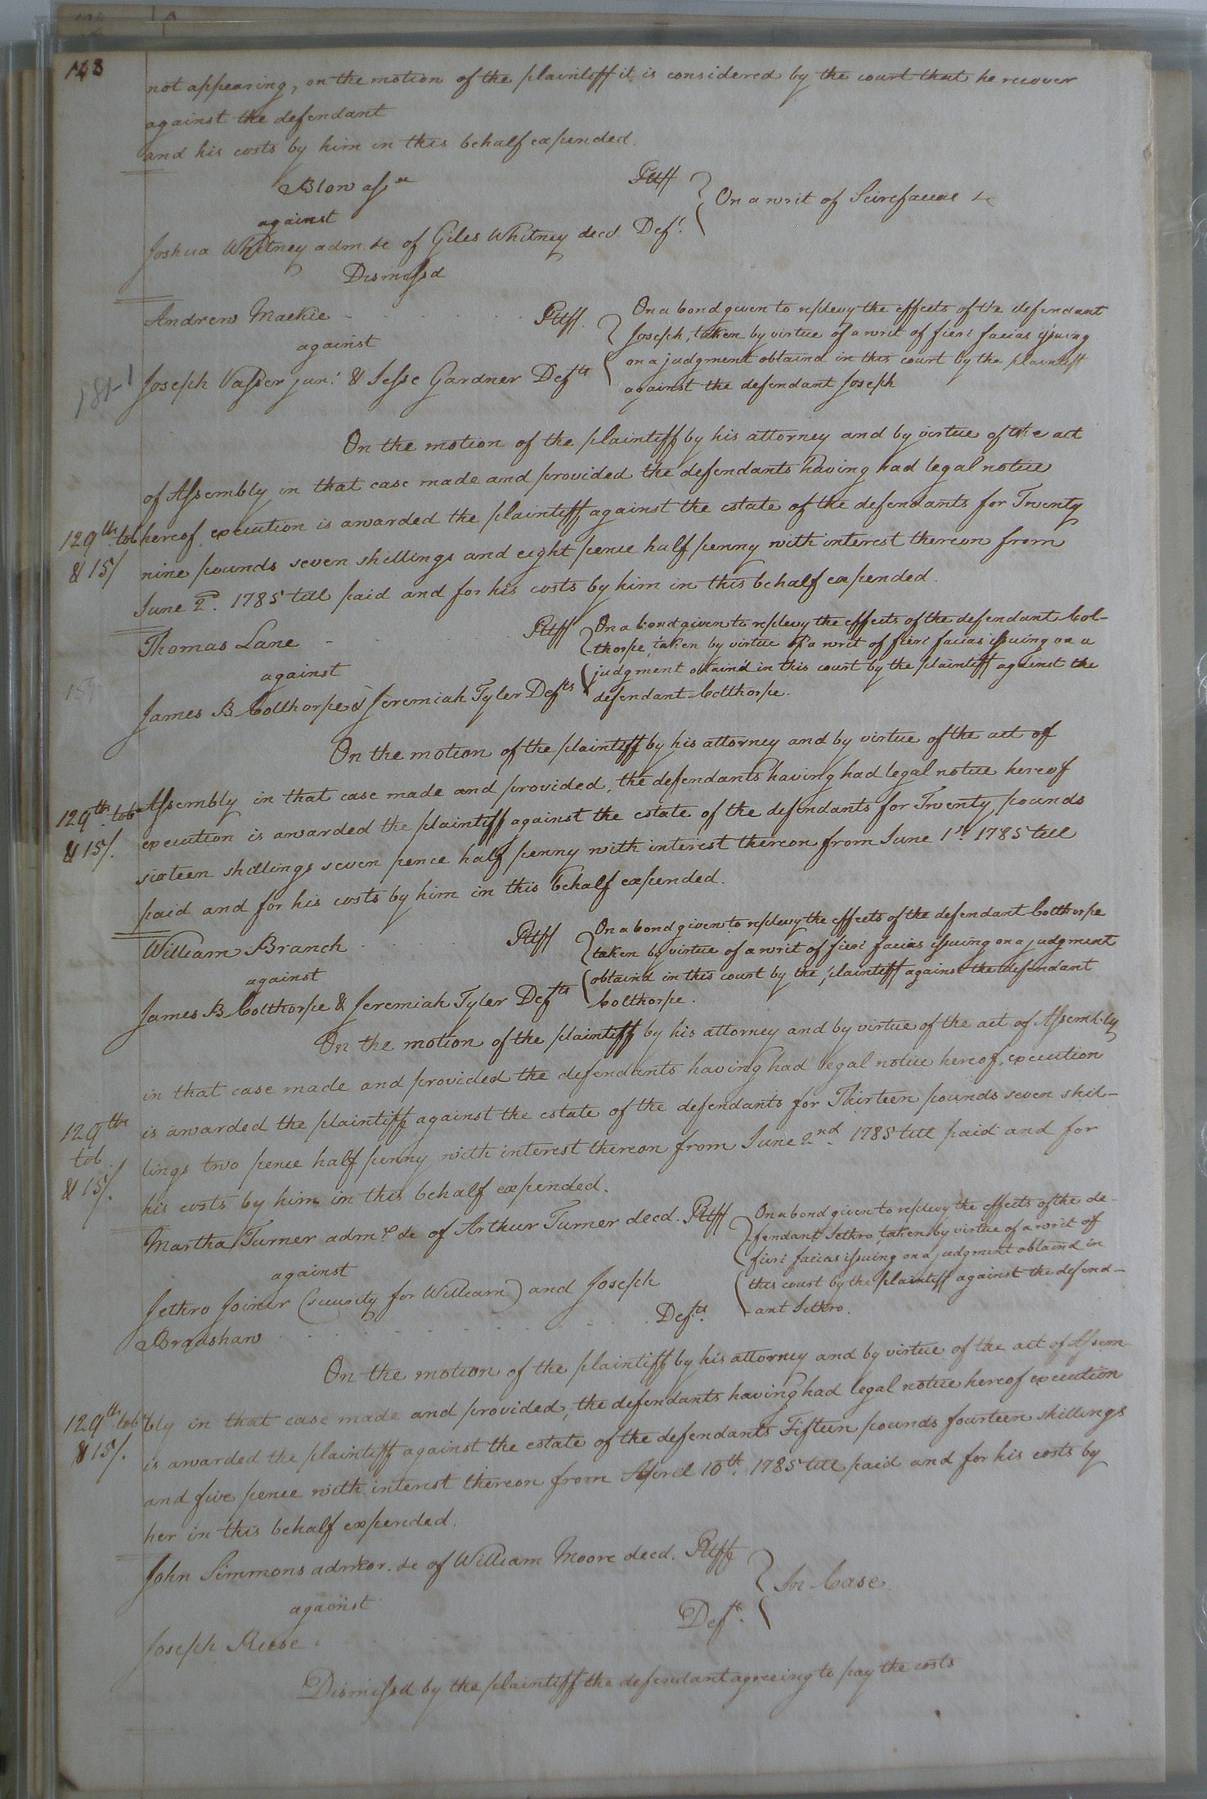 143
not appearing, on the motion of the plaintiff it is considered by the court that he recover
against the defendant
and his costs by him in this behalf expended.
Blow assee Pltff
against
On a writ of Scirefacias &c
Joshua Whitney adm. &c of Giles Whitney decd Deft.
Dismissd
Andrew Mackie Pltff.
against
Joseph Vasser junr. & Jesse Gardner Defts
On a bond given to replevy the effects of the defendant
Joseph, taken by virtue of a writ of fieri facias issuing
on a judgment obtaind in this court by the plaintiff
against the defendant Joseph
On the motion of the plaintiff by his attorney and by virtue of the act
of Assembly in that case made and provided the defendants having had legal notice
129 lb tob
& 15/
hereof execution is awarded the plaintiff against the estate of the defendants for Twenty
nine pounds seven shillings and eight pence half penny with interest thereon from
June 2d. 1785 till paid and for his costs by him in this behalf expended.
Thomas Lane Pltff
against
James B Colthorpe & Jeremiah Tyler Defts
On a bond given to replevy the effects of the defendant Col-
thorpe, taken by virtue of a writ of fieri facias issuing on a
judgment obtaind in this court by the plaintiff against the
defendant Colthorpe.
On the motion of the plaintiff by his attorney and by virtue of the act of
129 lb. tob
& 15/.
Assembly in that case made and provided, the defendants having had legal notice hereof
execution is awarded the plaintiff against the estate of the defendants for Twenty pounds
sixteen shillings seven pence half penny with interest thereon from June 1st. 1785 till
paid and for his costs by him in this behalf expended.
William Branch Pltff
against
James B Colthorpe & Jeremiah Tyler Defts
On a bond given to replevy the effects of the defendant Colthorpe
taken by virtue of a writ of fieri facias issuing on a judgment
obtaind in this court by the plaintiff against the defendant
Colthorpe.
On the motion of the plaintiff by his attorney and by virtue of the act of Assembly
in that case made and provided the defendants having had legal notice hereof, execution
129 lb
tob
& 15/.
is awarded the plaintiff against the estate of the defendants for Thirteen pounds seven shil-
lings two pence half penny with interest thereon from June 2nd. 1785 till paid and for
his costs by him in this behalf expended.
Martha Turner admx &c of Arthur Turner decd. Pltff
against
Jethro Joiner (security for William) and Joseph
Bradshaw Defts.
On a bond given to replevy the effects of the de-
fendant Jethro, taken by virtue of a writ of
fieri facias issuing on a judgment obtaind in
this court by the plaintiff against the defend-
ant Jethro.
On the motion of the plaintiff by his attorney and by virtue of the act of Assem-
129 lb tob
& 15/.
bly in that case made and provided, the defendants having had legal notice hereof execution
is awarded the plaintiff against the estate of the defendants Fifteen pounds fourteen shillings
and five pence with interest thereon from April 10th. 1785 till paid and for his costs by
her in this behalf expended.
John Simmons admor. &c of William Moore decd. Pltff
against
In Case
Joseph Reese Deft.
Dismissd by the plaintiff the defendant agreeing to pay the costs